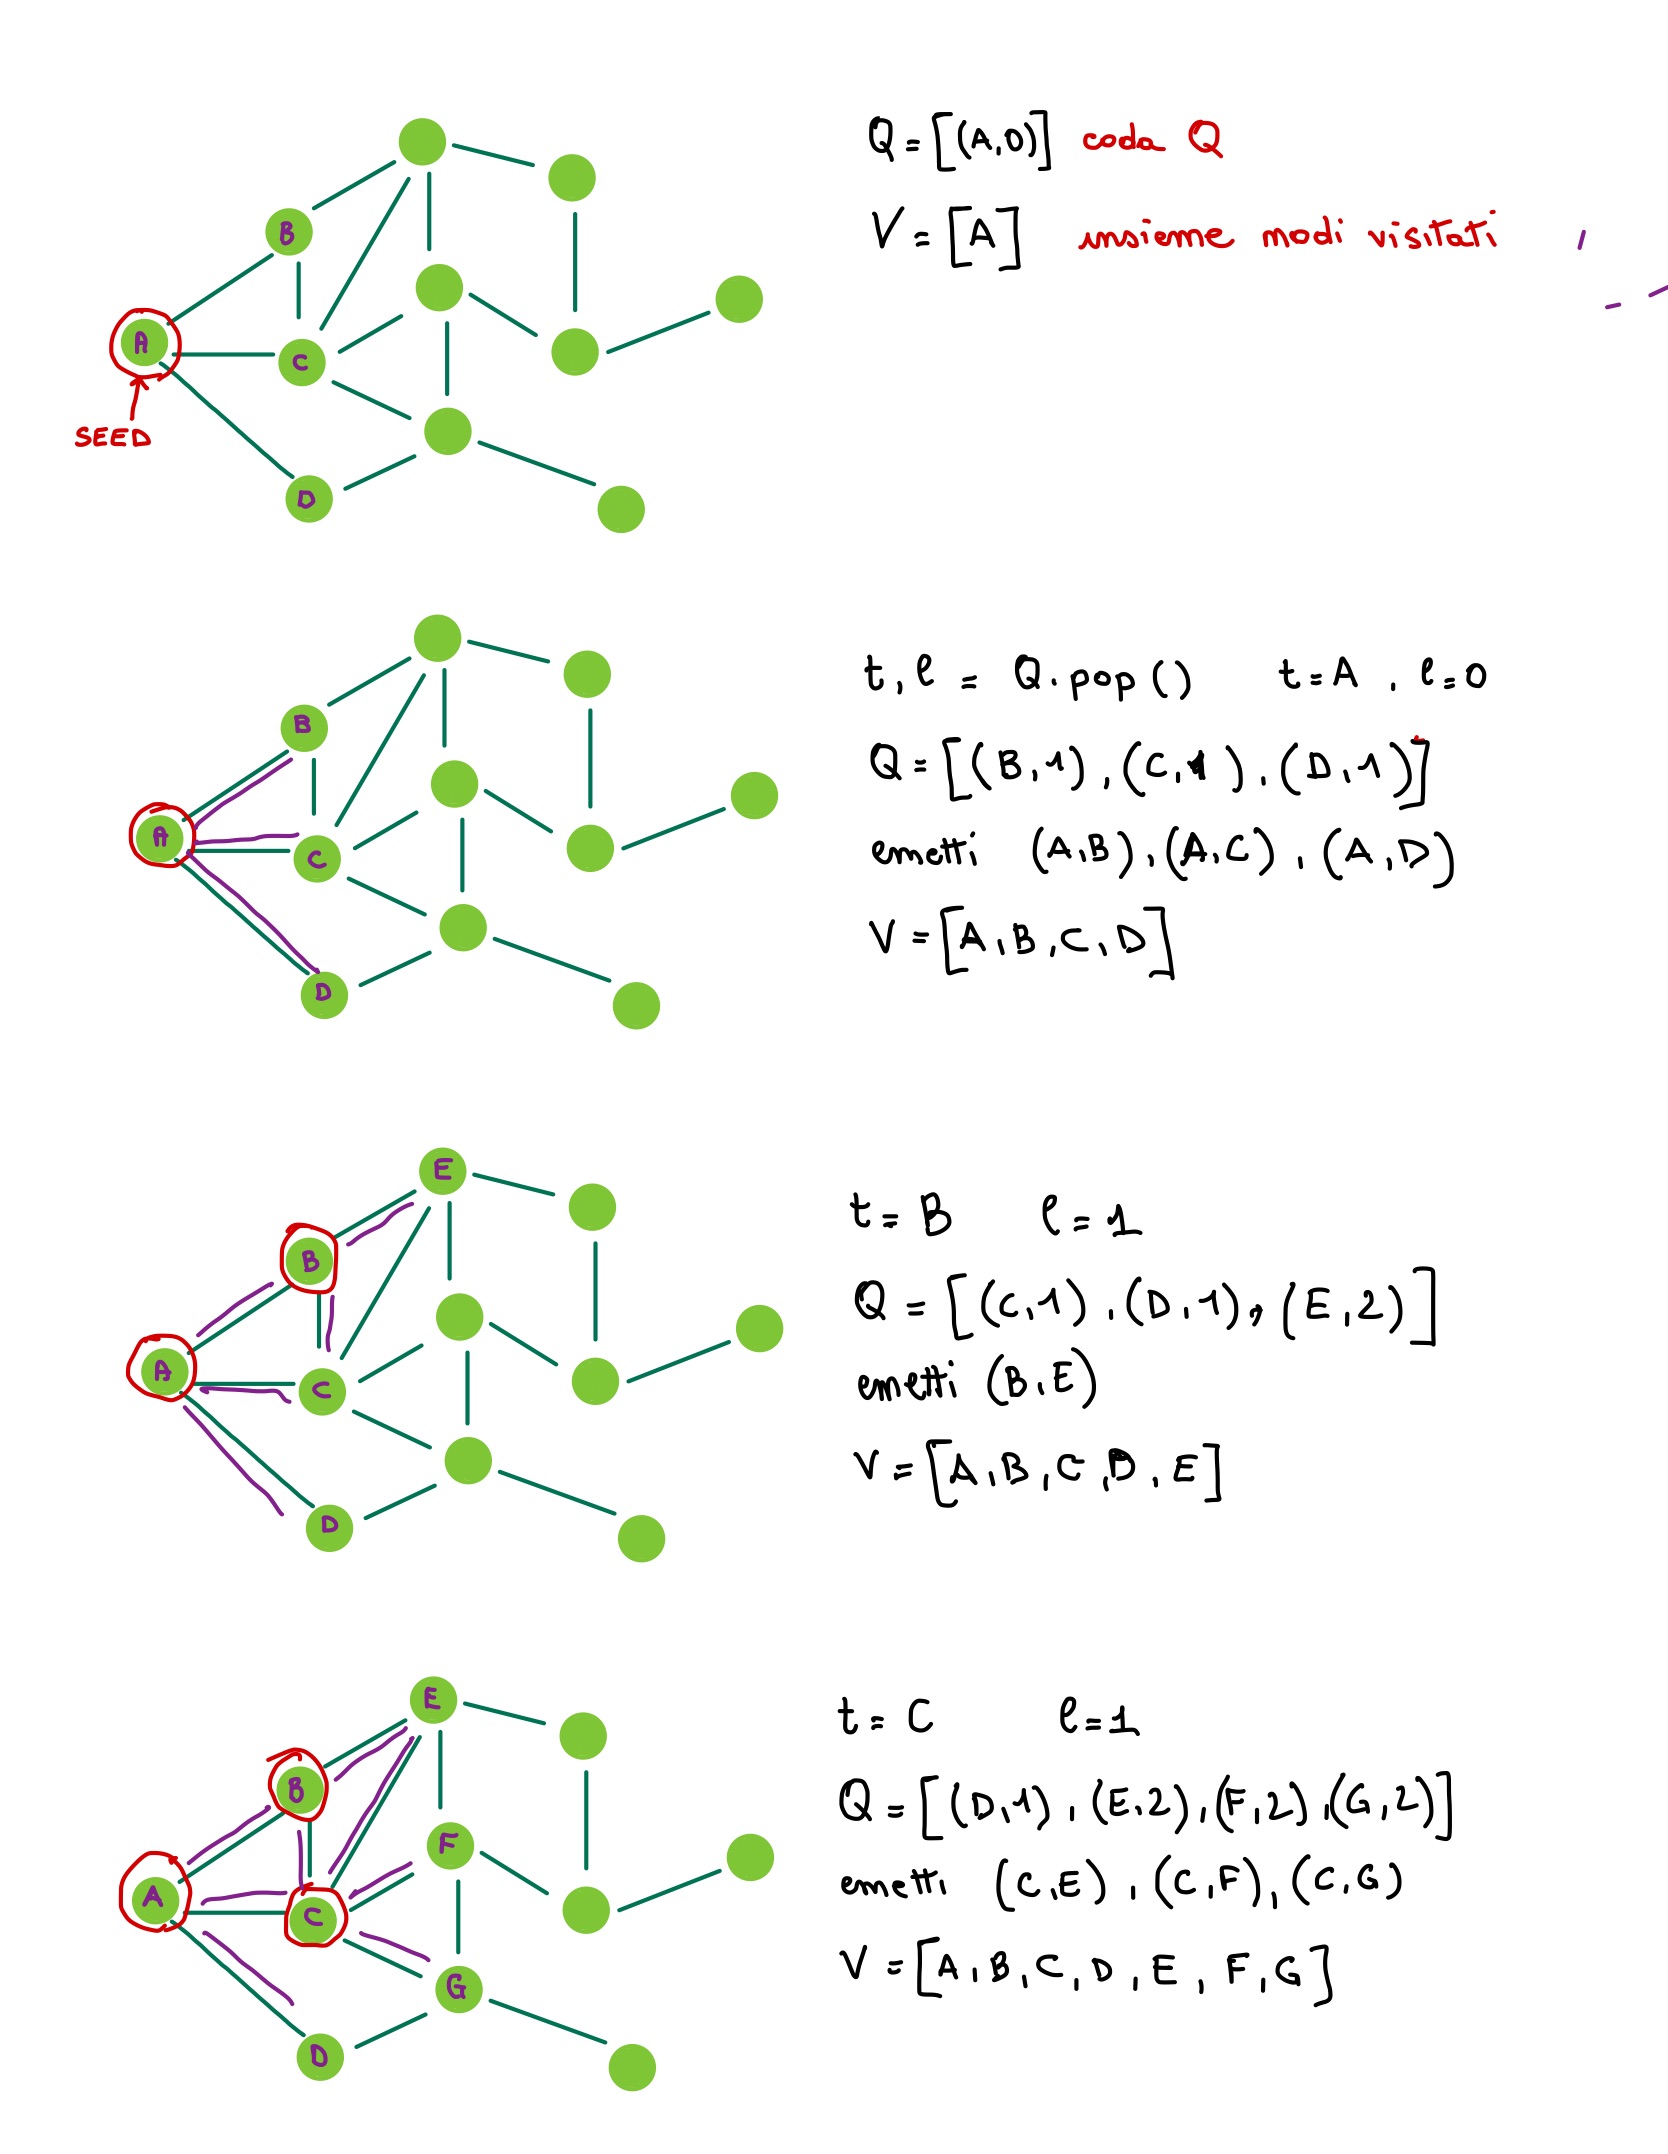 Q = [(A,0)] coda Q
V = [A] insieme nodi visitati
B
A
C
SEED
D
t, l = Q.pop() t=A , l=0
Q = [(B,1), (C,1), (D,1)]
emetti (A,B), (A,C), (A,D)
V = [A,B,C,D]
B
A
C
D
E
B
A
C
D
t = B l = 1
Q = [(C,1), (D,1), (E,2)]
emetti (B,E)
V = [A,B,C,D,E]
E
B
F
A
C
G
D
t = C l = 1
Q = [(D,1), (E,2), (F,2), (G,2)]
emetti (C,E), (C,F), (C,G)
V = [A,B,C,D,E,F,G]